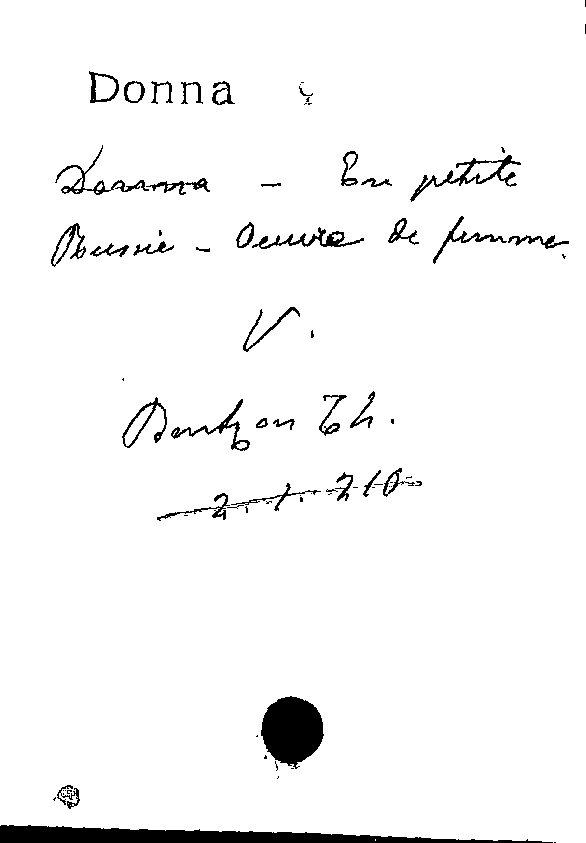 Donna
Donna — En petite
Russie — Oeuvre de femme.
V.
Bentzon Th.
2. 1. 210